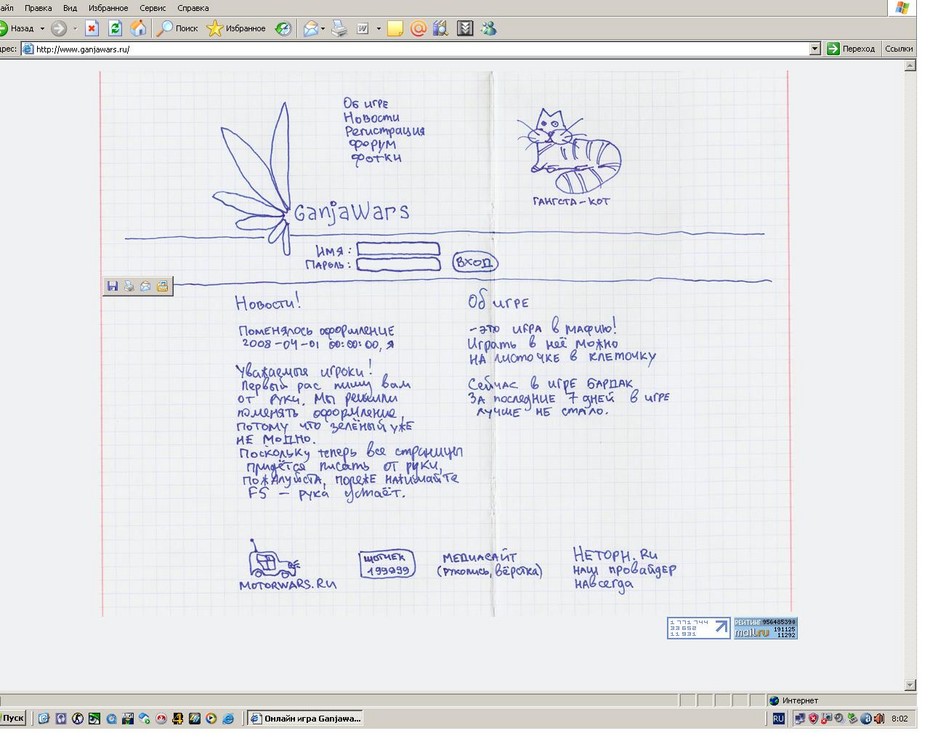 айл Правка Вид Избранное Сервис Справка
Назад Поиск Избранное
рес: http://www.ganjawars.ru/ Переход Ссылки
Об игре
Новости
Регистрация
Форум
Фотки
GanjaWars
ГАНГСТА-КОТ
Имя:
Пароль:
Вход
Новости!
Поменялось оформление
2008-04-01 00:00:00, Я
Уважаемые игроки!
Первый рас пишу вам
от руки. Мы решили
поменять оформление,
потому что зелёный уже
не модно.
Поскольку теперь все страницы
придётся писать от руки,
пожалуйста, пореже нажимайте
F5 – рука устаёт.
Об игре
-это игра в мафию!
Играть в неё можно
на листочке в клеточку
Сейчас в игре бардак
За последние 7 дней в игре
лучше не стало.
MOTORWARS.RU
199999
Медиасайт
(рукопись, вёрстка)
Неторн.Ru
наш провайдер
навсегда
1771744
33652
11931
РЕЙТИНГ 956485398
mail.ru 191125
11292
Интернет
Пуск Онлайн игра Ganjawa... RU 8:02